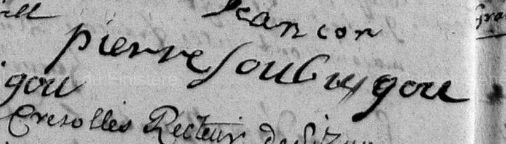 Jean con
pierre Soubigou
gou
Cresolles Recteur de Sizun